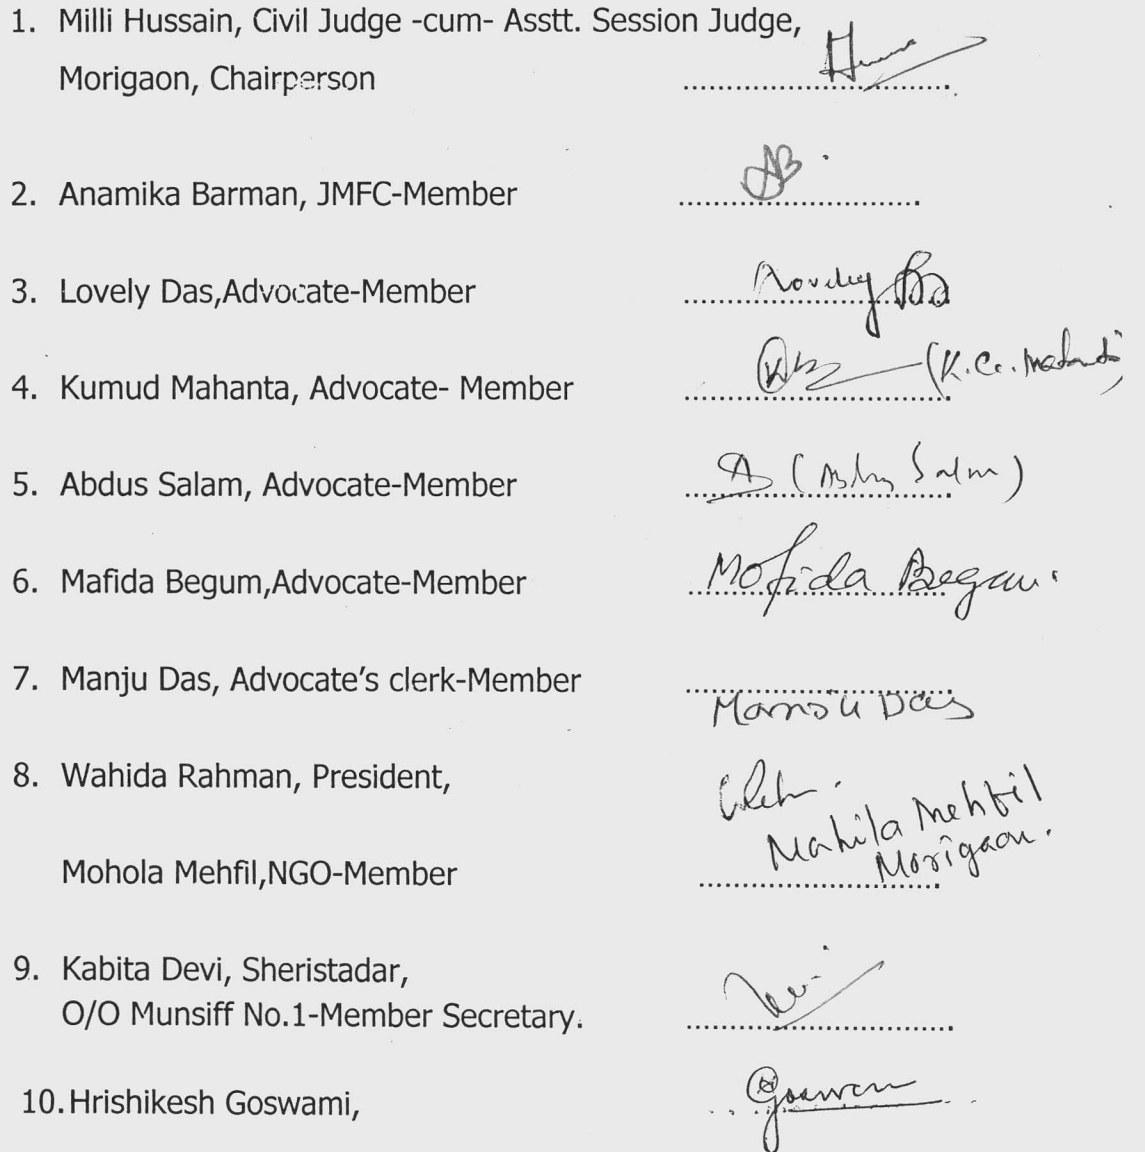 1. Milli Hussain, Civil Judge -cum- Asstt. Session Judge,
Morigaon, Chairperson ............................
2. Anamika Barman, JMFC-Member ............................
3. Lovely Das,Advocate-Member ............................
4. Kumud Mahanta, Advocate- Member ............................ (K.C. Mahanta)
5. Abdus Salam, Advocate-Member ............................ (Abdus Salam)
6. Mafida Begum,Advocate-Member ............................ Mofida Begum.
7. Manju Das, Advocate's clerk-Member ............................
Manju Das
8. Wahida Rahman, President,
Mahila Mehfil
Morigaon.
Mohola Mehfil,NGO-Member ............................
9. Kabita Devi, Sheristadar,
O/O Munsiff No.1-Member Secretary. ............................
10. Hrishikesh Goswami, Goswami